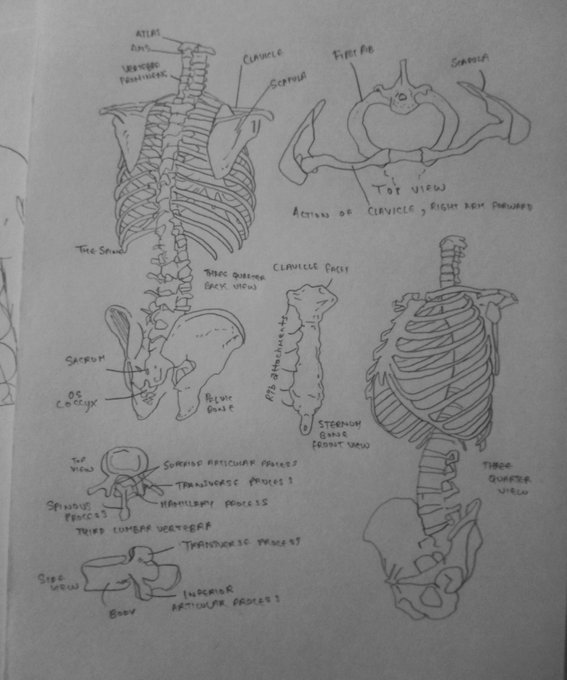 ATLAS
AXIS
VERTEBRA
PROMINENS
CLAVICLE
SCAPULA
THE SPINE
THREE QUARTER
BACK VIEW
SACRUM
OS
COCCYX
PELVIC
BONE
FIRST RIB
SCAPULA
TOP VIEW
ACTION OF CLAVICLE, RIGHT ARM FORWARD
CLAVICLE FACET
RIB attachments
STERNUM
BONE
FRONT VIEW
THREE
QUARTER
VIEW
TOP
VIEW
SUPERIOR ARTICULAR PROCESS
TRANSVERSE PROCESS
MAMILLARY PROCESS
SPINOUS
PROCESS
THIRD LUMBAR VERTEBRA
TRANSVERSE PROCESS
SIDE
VIEW
BODY
INFERIOR
ARTICULAR PROCESS